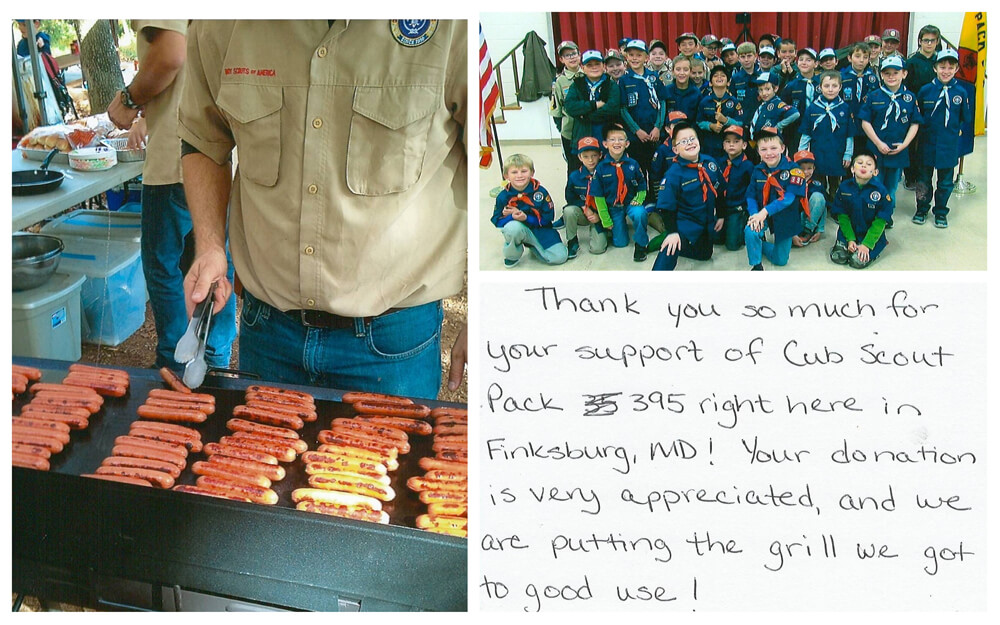 BOY SCOUTS OF AMERICA
SINCE 1910
PACK
Thank you so much for
your support of Cub Scout
Pack 395 right here in
Finksburg, MD! Your donation
is very appreciated, and we
are putting the grill we got
to good use!